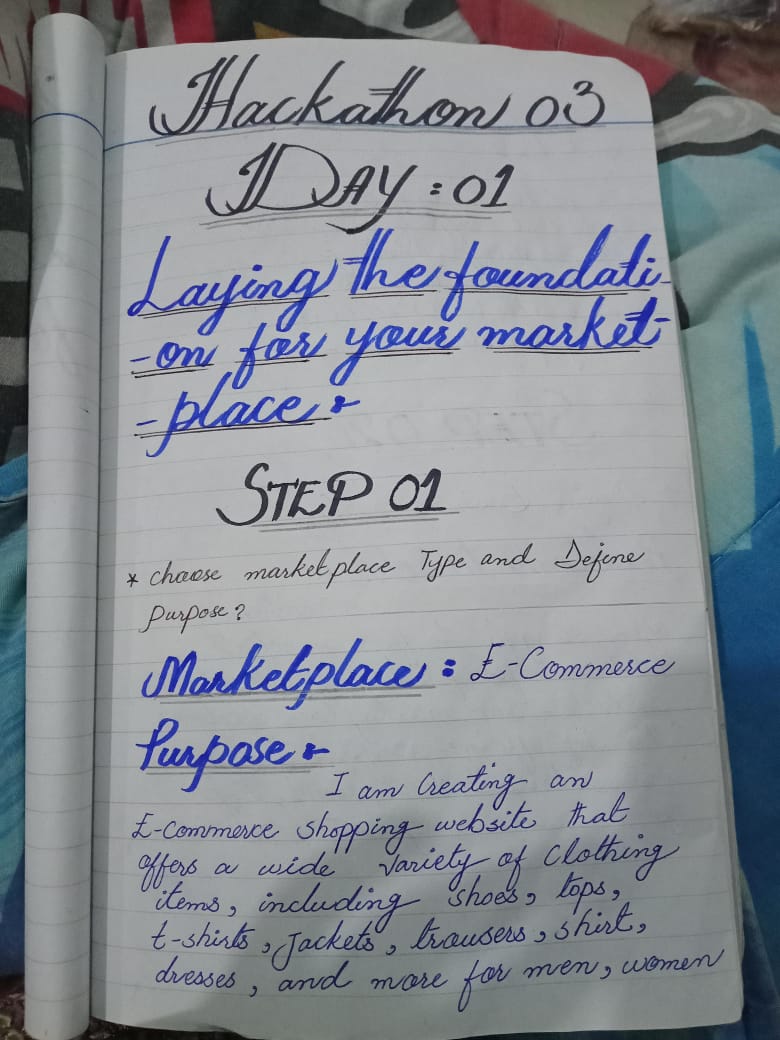 Hackathon 03
DAY : 01
Laying the foundati-
-on for your market-
-place :-
STEP 01
* choose marketplace Type and Define
purpose?
Marketplace : E-Commerce
Purpose :-
I am Creating an
E-commerce shopping website that
offers a wide variety of clothing
items, including shoes, tops,
t-shirts, Jackets, trousers, shirt,
dresses, and more for men, women